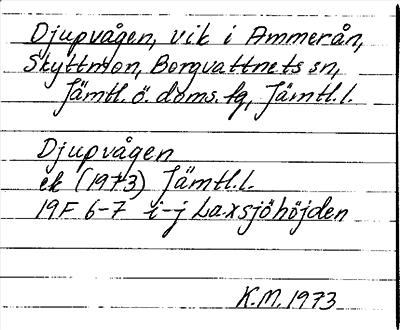 Djupvågen, vik i Ammerån,
Skyttmon, Borgvattnets sn,
Jämtl. ö. doms. fg, Jämtl. l.
Djupvågen
ek (1973) Jämtl. l.
19F 6-7 i-j Laxsjöhöjden
K.M. 1973